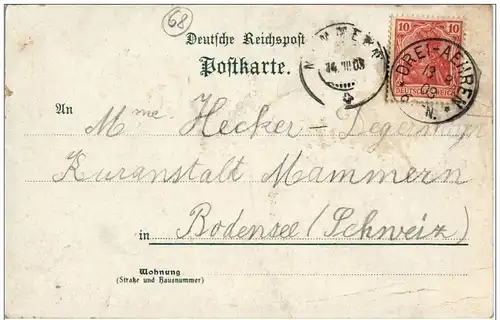 68
Deutsche Reichspost
Postkarte.
MAMMERN
14.VIII.09
10 10
DEUTSCHES REICH
DREI-AEHREN
13 8
09
N.
An
Mme. Hecker-
Kuranstalt Mammern
in Bodensee (Schweiz)
Wohnung
(Straße und Hausnummer)